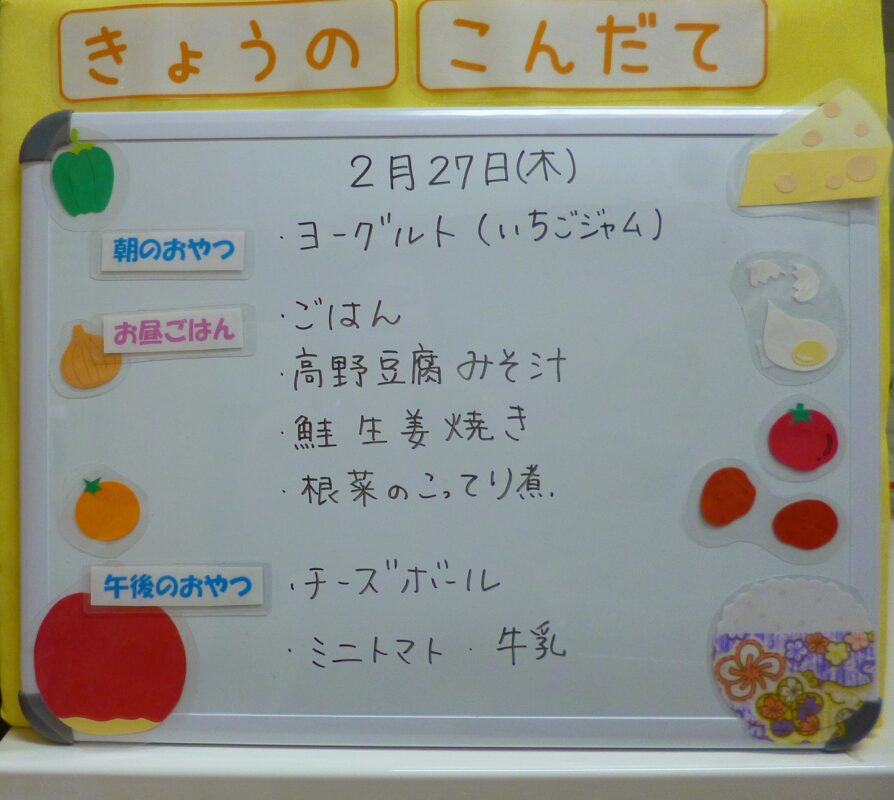 きょうの こんだて
2月27日(木)
朝のおやつ ・ヨーグルト (いちごジャム)
お昼ごはん ・ごはん
・高野豆腐 みそ汁
・鮭 生姜焼き
・根菜のこってり煮.
午後のおやつ ・チーズボール
・ミニトマト ・ 牛乳